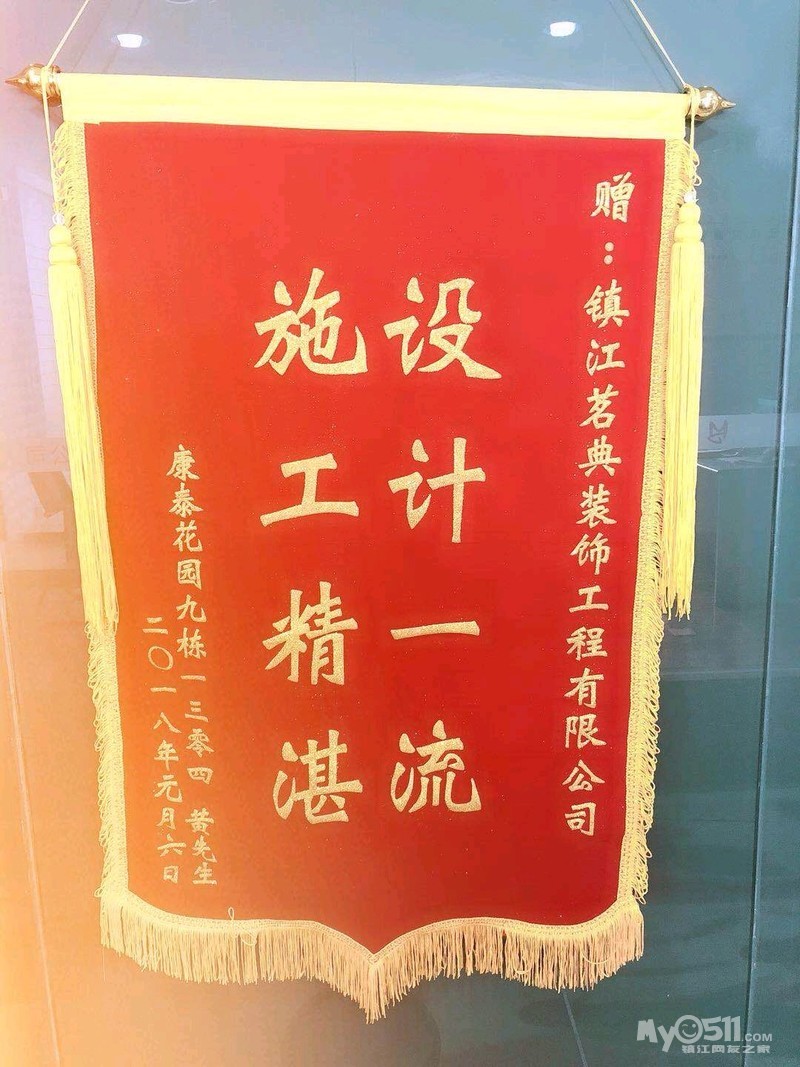 赠：镇江茗典装饰工程有限公司
设计一流
施工精湛
康泰花园九栋一三零四 黄先生
二〇一八年元月六日
My0511.COM
镇江网友之家